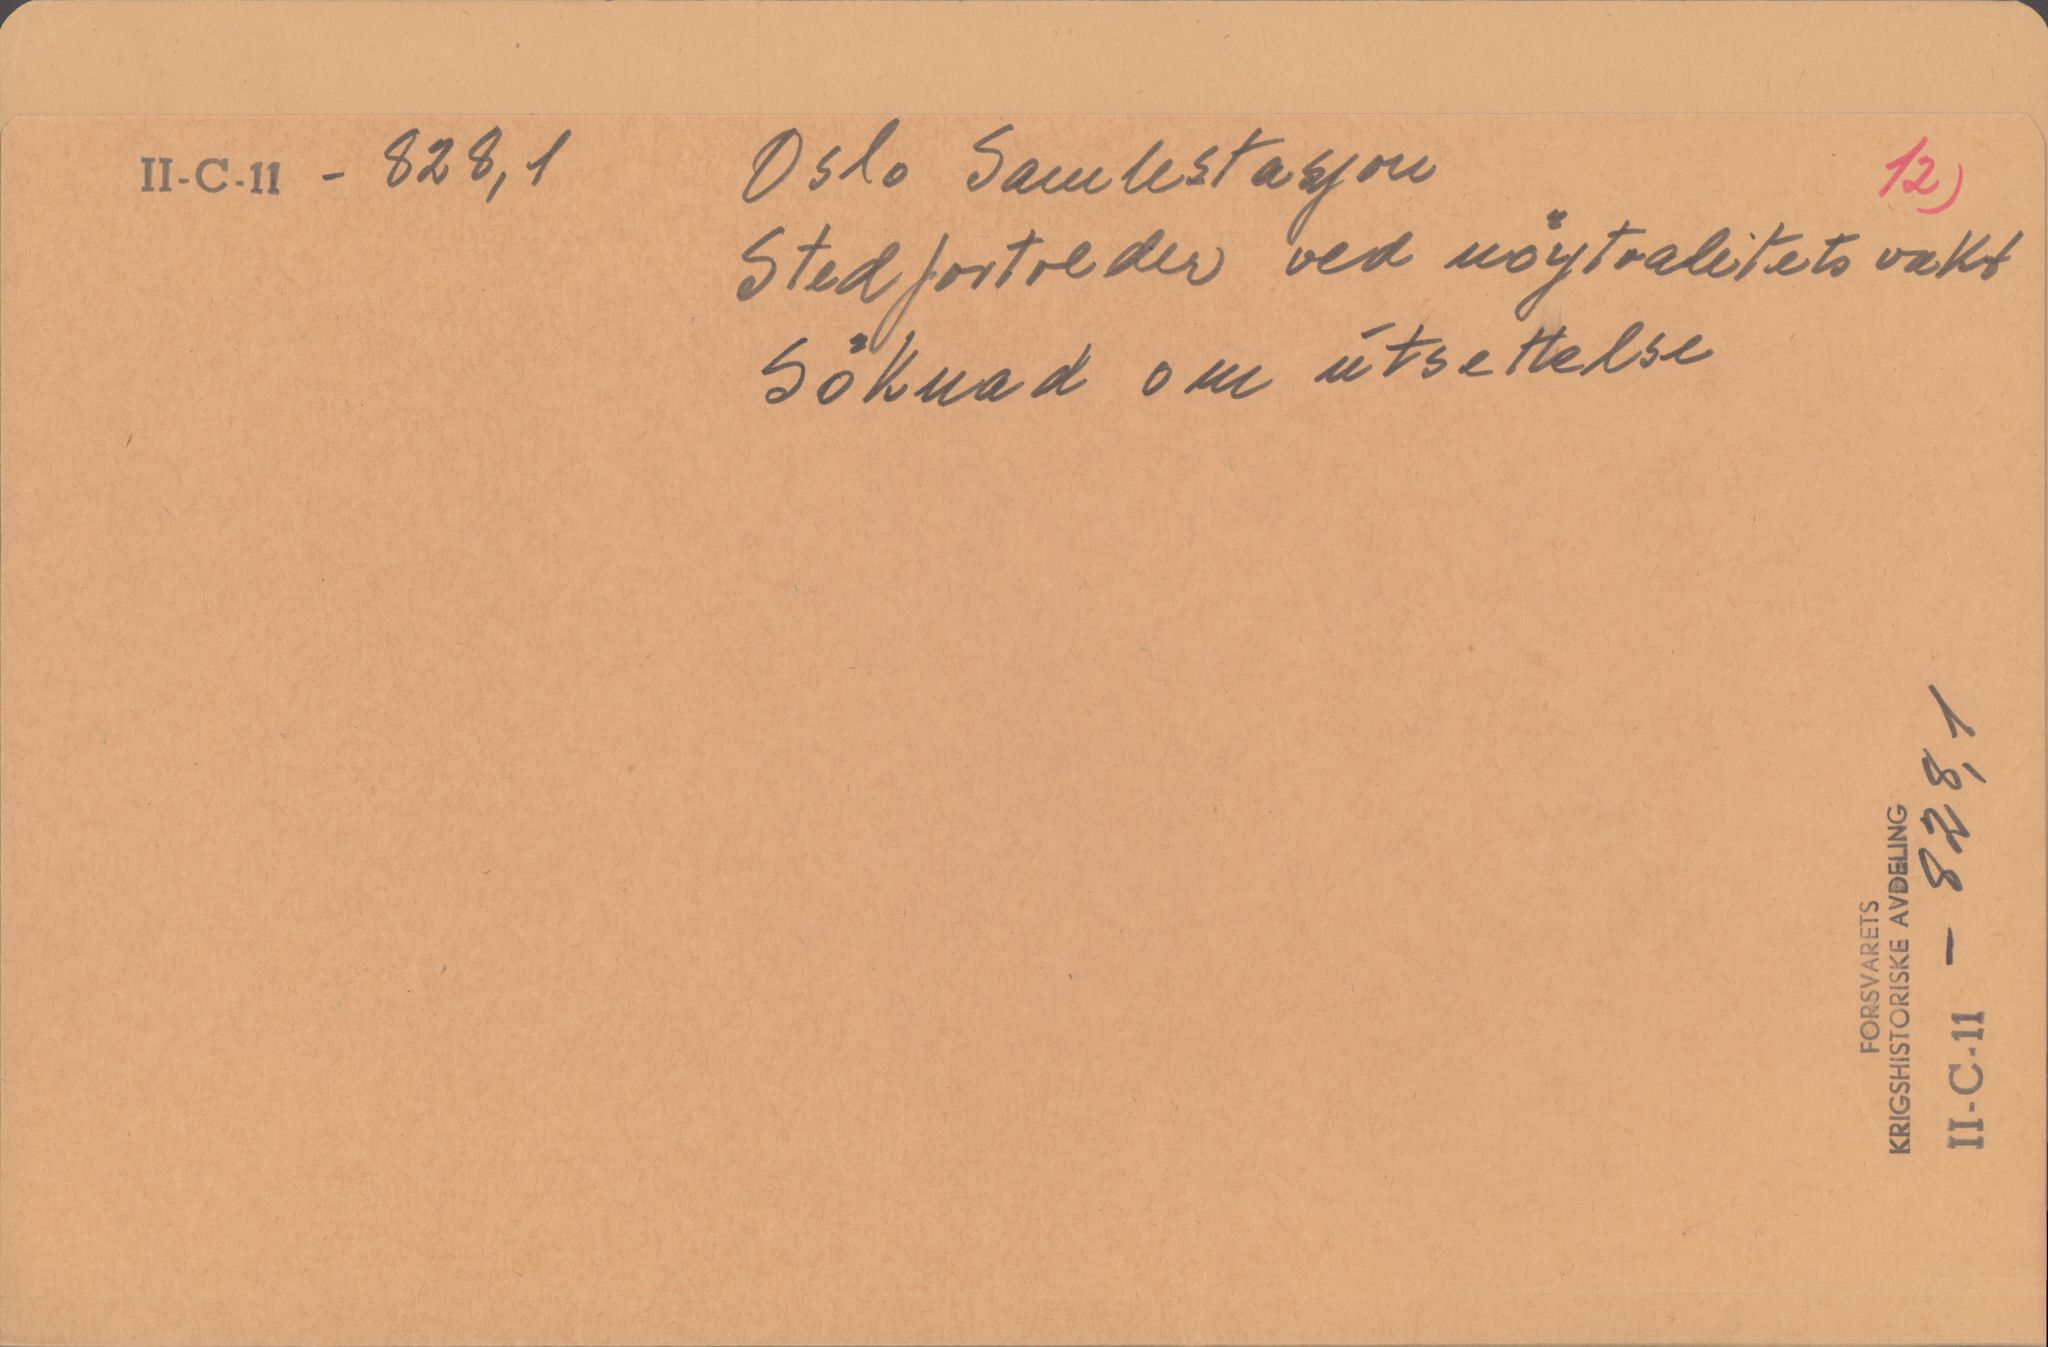 II-C-11 - 828,1
Oslo Samlestasjon
12)
Stedfortreder ved nöytralitetsvakt
Söknad om utsettelse
FORSVARETS
KRIGSHISTORISKE AVDELING
II-C-11 - 828,1